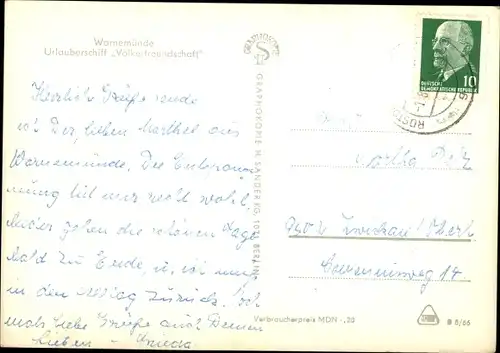 Warnemünde
Urlauberschiff „Völkerfreundschaft"
Herzlich Grüße sende
ich Dir, lieben Marthel aus
Warnemünde. Die Entspan-
nung tut mir recht wohl.
Leider gehen die schönen Tage
bald zu Ende, u. ich muß
in den Alltag zurück. Noch
mals liebe Grüße auch Deinen
Lieben – Frieda
GRAPHOKOPIE
GRAPHOKOPIE H. SANDER KG, 1055 BERLIN
DEUTSCHE
DEMOKRATISCHE REPUBLIK
10
ROSTOCK
Frau
Martha
Zwickau
14
Verbraucherpreis MDN -,20
B 8/66